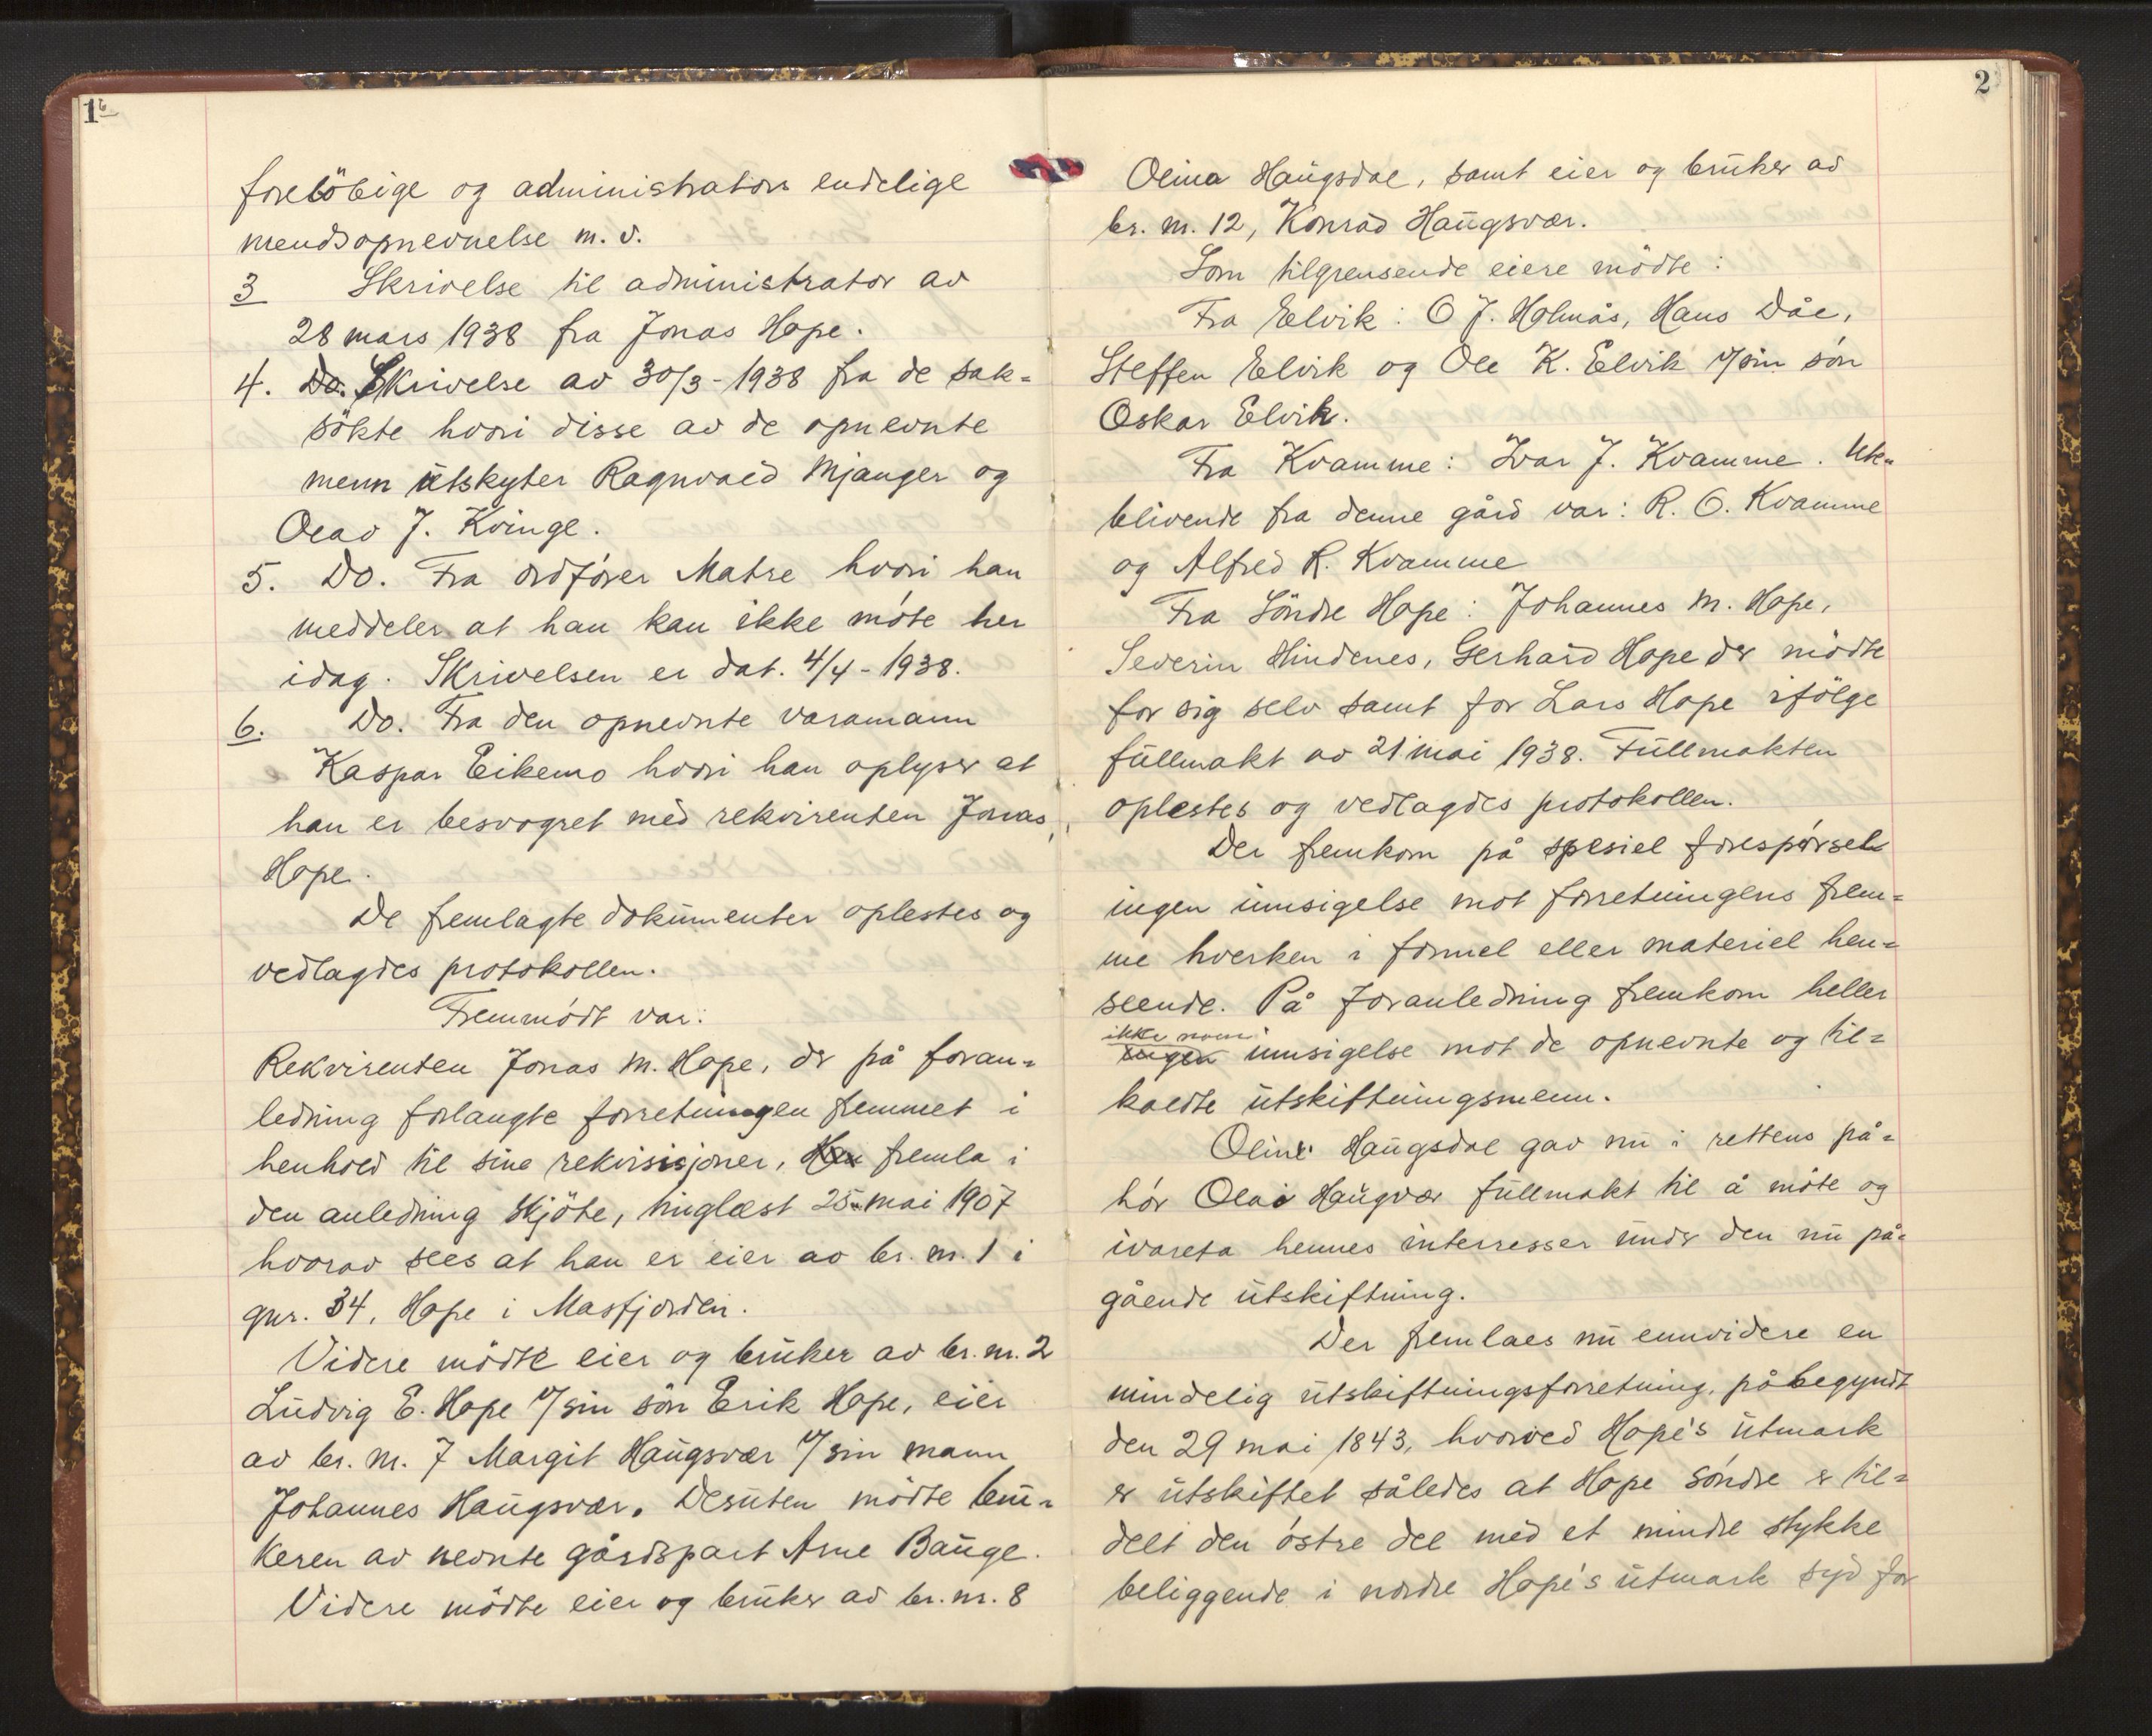 1b
forelöbige og administrators endelige
mendsopnevnelse m. v.
3 Skrivelse til administrator av
28 mars 1938 fra Jonas Hope.
4. Do. Skrivelse av 30/3-1938 fra de sak=
sökte hvori disse av de opnevnte
menn utskyter Ragnvald Mjanger og
Olav J. Kvinge.
5. Do. Fra ordförer Matre hvori han
meddeler at han kan ikke möte her
idag. Skrivelsen er dat. 4/4-1938.
6. Do. Fra den opnevnte varamann
Kaspar Eikemo hvori han oplyser at
han er besvogret med rekvirenten Jonas
Hope.
De fremlagte dokumenter oplestes og
vedlagdes protokollen.
Fremmödt var:
Rekvirenten Jonas M. Hope, der på foran=
ledning forlangte forretningen fremmet i
henhold til sine rekvisisjoner, Han fremla i
den anledning skjöte, tinglæst 25. mai 1907
hvorav sees at han er eier av br. nr. 1 i
gnr. 34, Hope i Masfjorden.
Videre mödte eier og bruker av br. nr. 2
Ludvig E. Hope v/sin sön Erik Hope, eier
av br. nr. 7 Margit Haugsvær v/sin mann
Johannes Haugsvær. Desuten mödte bru=
keren av nevnte gårdspart Arne Bauge.
Videre mödte eier og bruker av br. nr. 8
2
Olina Haugsdal, samt eier og bruker av
br. nr. 12, Konrad Haugsvær.
Som tilgrensende eiere mödte:
Fra Elvik: O J. Holmås, Hans Dåe,
Steffen Elvik og Ole K. Elvik v/sin sön
Oskar Elvik.
Fra Kvamme: Ivar J. Kvamme. Ute=
blivende fra denne gård var: R. O. Kvamme
og Alfred R. Kvamme
Fra Söndre Hope: Johannes M. Hope,
Severin Hindenes, Gerhard Hope der mödte
for sig selv samt for Lars Hope ifölge
fullmakt av 21 mai 1938. Fullmakten
oplestes og vedlagdes protokollen.
Der fremkom på spesiel forespörsel
ingen innsigelse mot forretningens frem=
me hverken i formel eller materiel hen=
seende. På foranledning fremkom heller
ikke noen
ingen innsigelse mot de opnevnte og til=
kaldte utskiftningsmenn.
Oline Haugsdal gav nu i rettens på=
hör Olai Haugvær fullmakt til å möte og
ivareta hennes interresser under den nu på=
gående utskiftning.
Der fremlaes nu ennvidere en
mindelig utskiftningsforretning, påbegyndt
den 29 mai 1843, hvorved Hope's utmark
er utskiftet således at Hope Söndre er til=
delt den östre del med et mindre stykke
beliggende i nordre Hope's utmark syd for